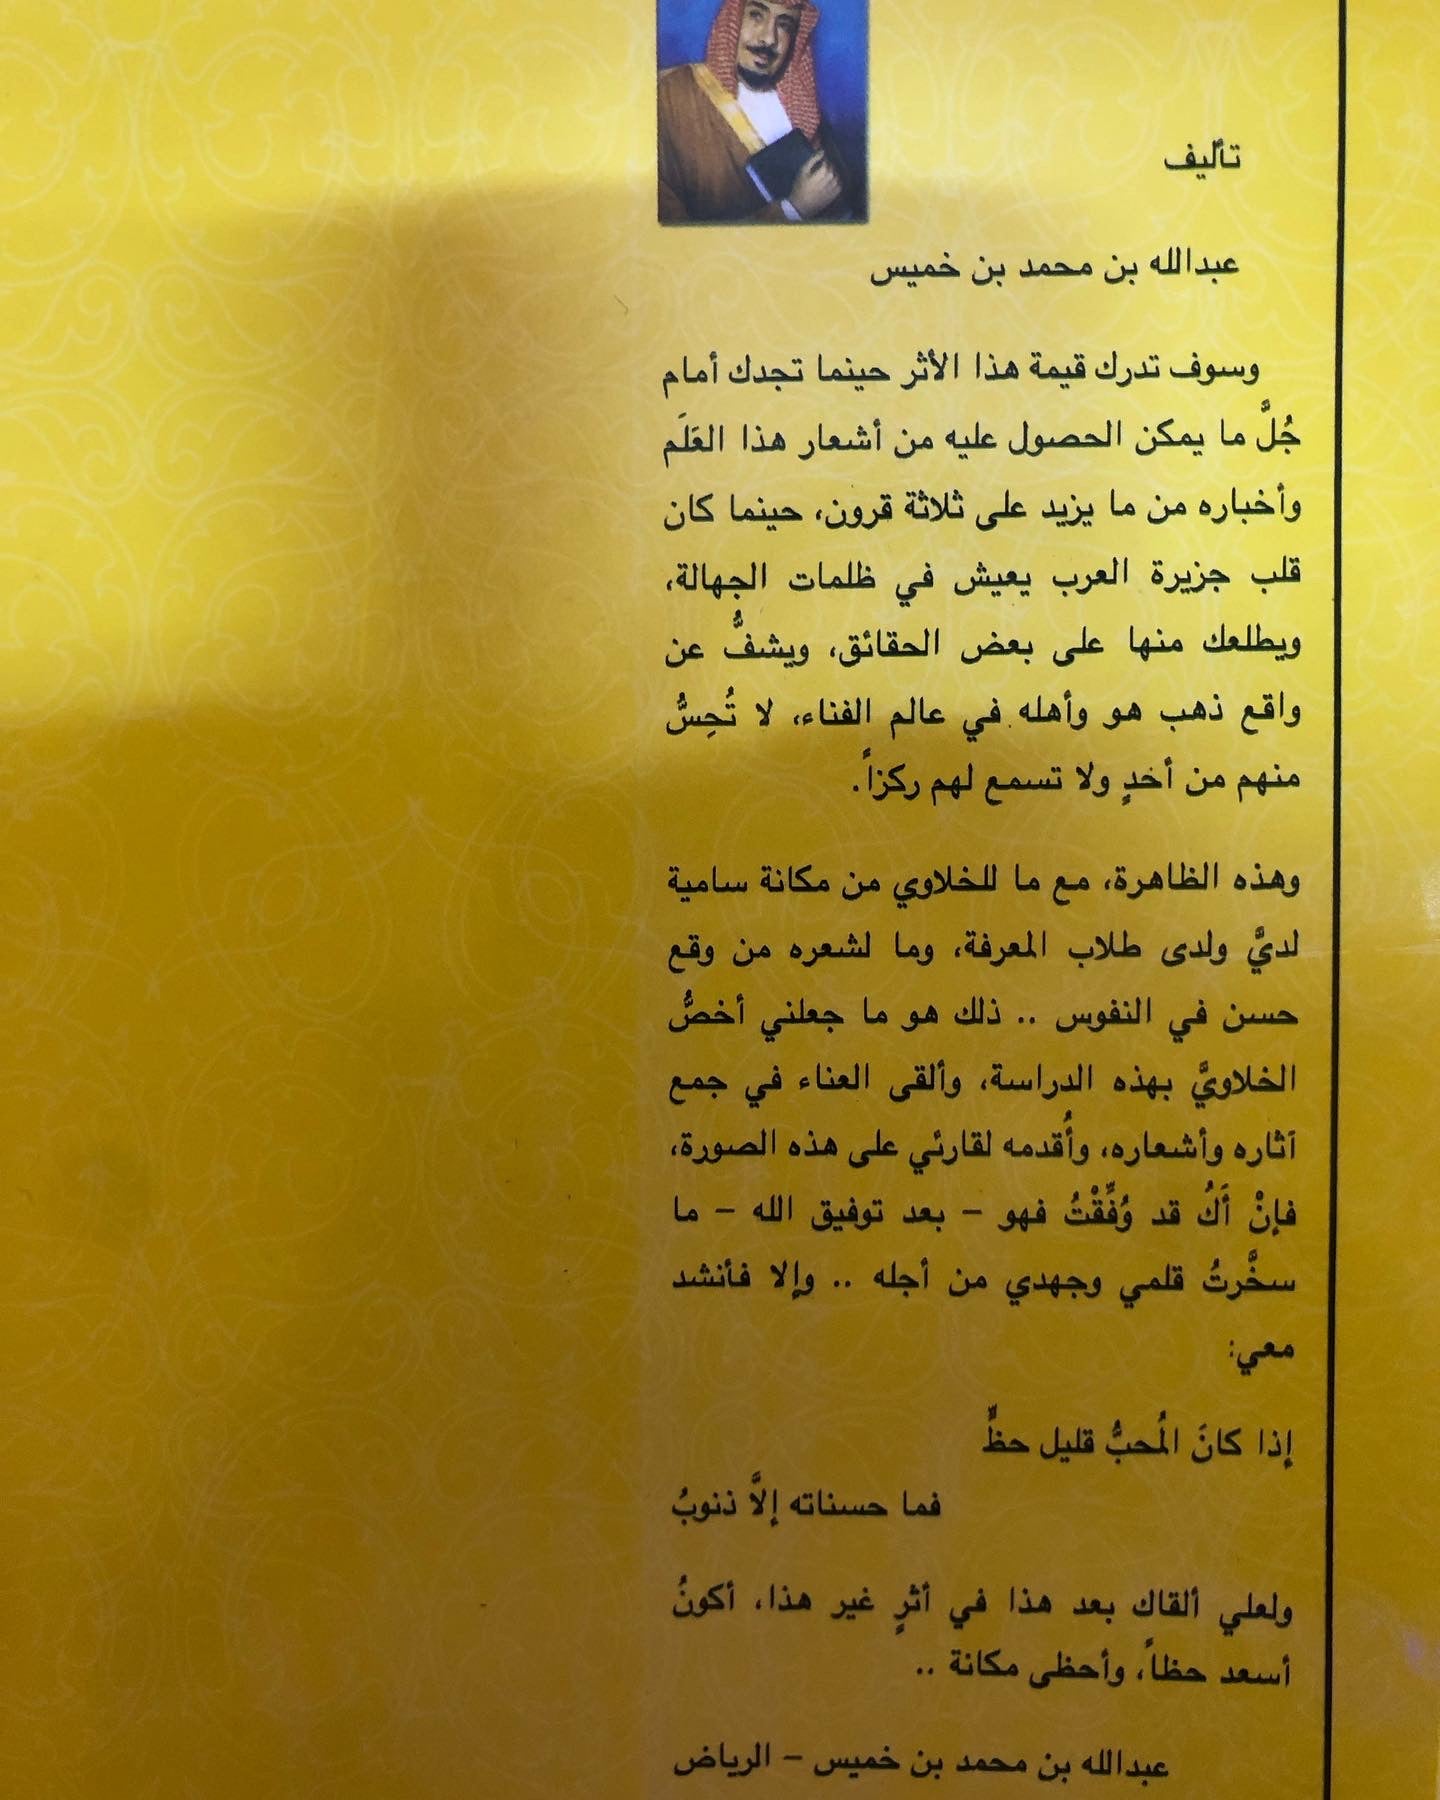 تأليف
عبدالله بن محمد بن خميس
وسوف تدرك قيمة هذا الأثر حينما تجدك أمام
جُلَّ ما يمكن الحصول عليه من أشعار هذا العَلَم
وأخباره من ما يزيد على ثلاثة قرون، حينما كان
قلب جزيرة العرب يعيش في ظلمات الجهالة،
ويطلعك منها على بعض الحقائق، ويشفُّ عن
واقع ذهب هو وأهله في عالم الفناء، لا تُحِسُّ
منهم من أخدٍ ولا تسمع لهم ركزاً.
وهذه الظاهرة، مع ما للخلاوي من مكانة سامية
لديَّ ولدى طلاب المعرفة، وما لشعره من وقع
حسن في النفوس .. ذلك هو ما جعلني أخصُّ
الخلاويَّ بهذه الدراسة، وألقى العناء في جمع
آثاره وأشعاره، وأُقدمه لقارئي على هذه الصورة،
فإنْ أَكُ قد وُفِّقْتُ فهو – بعد توفيق الله – ما
سخَّرتُ قلمي وجهدي من أجله .. وإلا فأنشد
معي:
إذا كانَ المُحبُّ قليل حظٍّ
فما حسناته إلاَّ ذنوبُ
ولعلي ألقاك بعد هذا في أثرٍ غير هذا، أكونُ
أسعد حظاً، وأحظى مكانة ..
عبدالله بن محمد بن خميس – الرياض